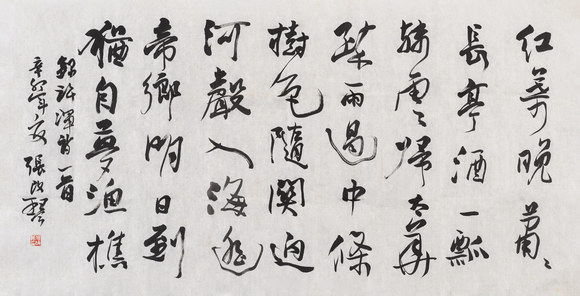 红葉晚萧々
長亭酒一瓢
残雲歸太華
疎雨過中條
樹色隨関迥
河聲入海遥
帝鄉明日到
猶自夢漁樵
録許渾詩一首
辛卯年夏 張改琴